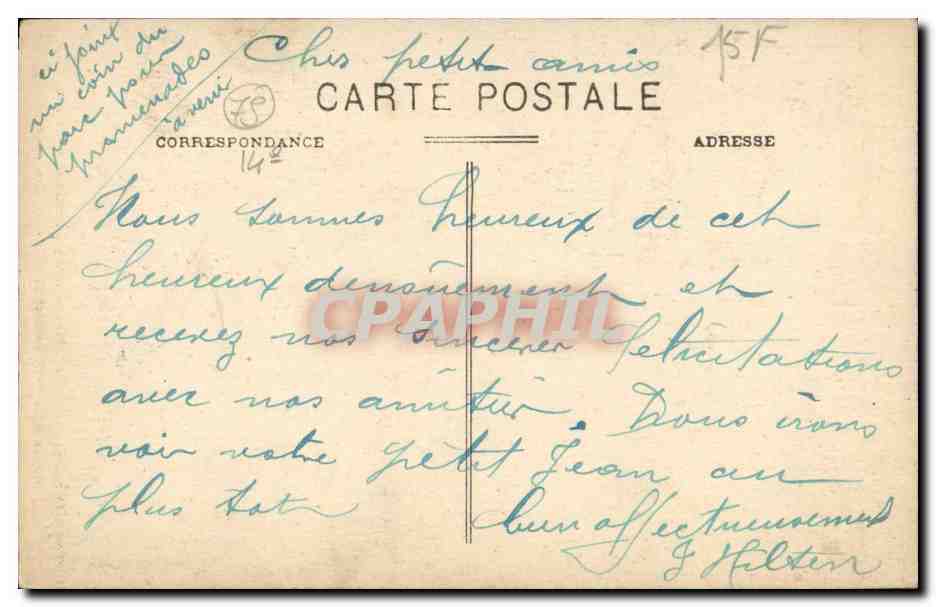 ci joint
un coin du
parc pour
promenades
à venir
Chers petits amis
15F
CARTE POSTALE
75
14e
CORRESPONDANCE
ADRESSE
Nous sommes heureux de cet
heureux denouement et
recevez nos sincères félicitations
avec nos amitiés. Nous irons
voir votre petit Jean au
plus tôt
bien affectueusement
J Hilten
CPAPHIL